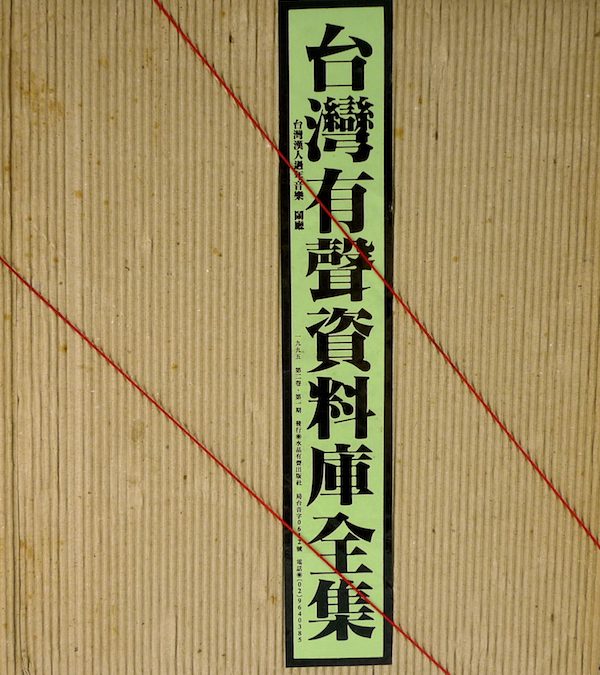 台灣有聲資料庫全集
台灣漢人過年音樂 鬧廳
一九九五 第二卷·第一期 發行※水晶有聲出版社 局台音字0612號 電話※(02)9640385